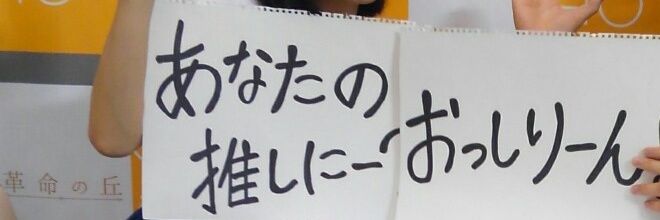 あなたの
推しにー
おっしりーん
革命の丘